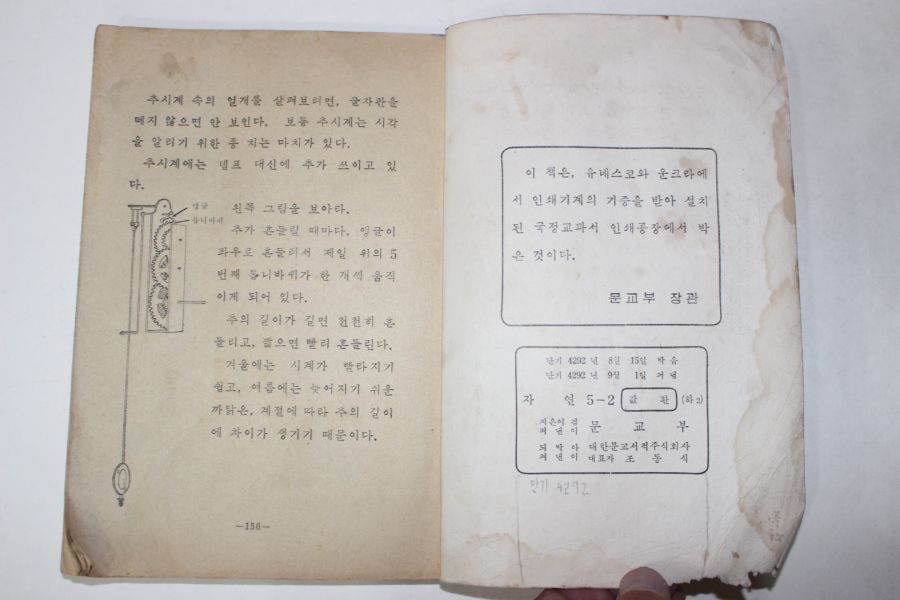 추시계 속의 얼개를 살펴보려면, 글자판을
떼지 않으면 안 보인다. 보통 추시계는 시각
을 알리기 위한 종 치는 마치가 있다.
추시계에는 템프 대신에 추가 쓰이고 있
다.
앵글
톱니바퀴
왼쪽 그림을 보아라.
추가 흔들릴 때마다, 앵글이
좌우로 흔들려서 제일 위의 5
번째 톱니바퀴가 한 개씩 움직
이게 되어 있다.
추의 길이가 길면 천천히 흔
들리고, 짧으면 빨리 흔들린다.
겨울에는 시계가 빨라지기
쉽고, 여름에는 늦어지기 쉬운
까닭은, 계절에 따라 추의 길이
에 차이가 생기기 때문이다.
—156—
이 책은, 유네스코와 운크라에
서 인쇄기계의 기증을 받아 설치
된 국정교과서 인쇄공장에서 박
은 것이다.
문교부 장관
단기 4292 년 8월 15일 박음
단기 4292 년 9월 1일 펴냄
자 연 5-2 값 환 (하2)
지은이 겸
펴낸이 문 교 부
박아
펴낸이 대한문교서적주식회사
대표자 조 동 식
단기 4292